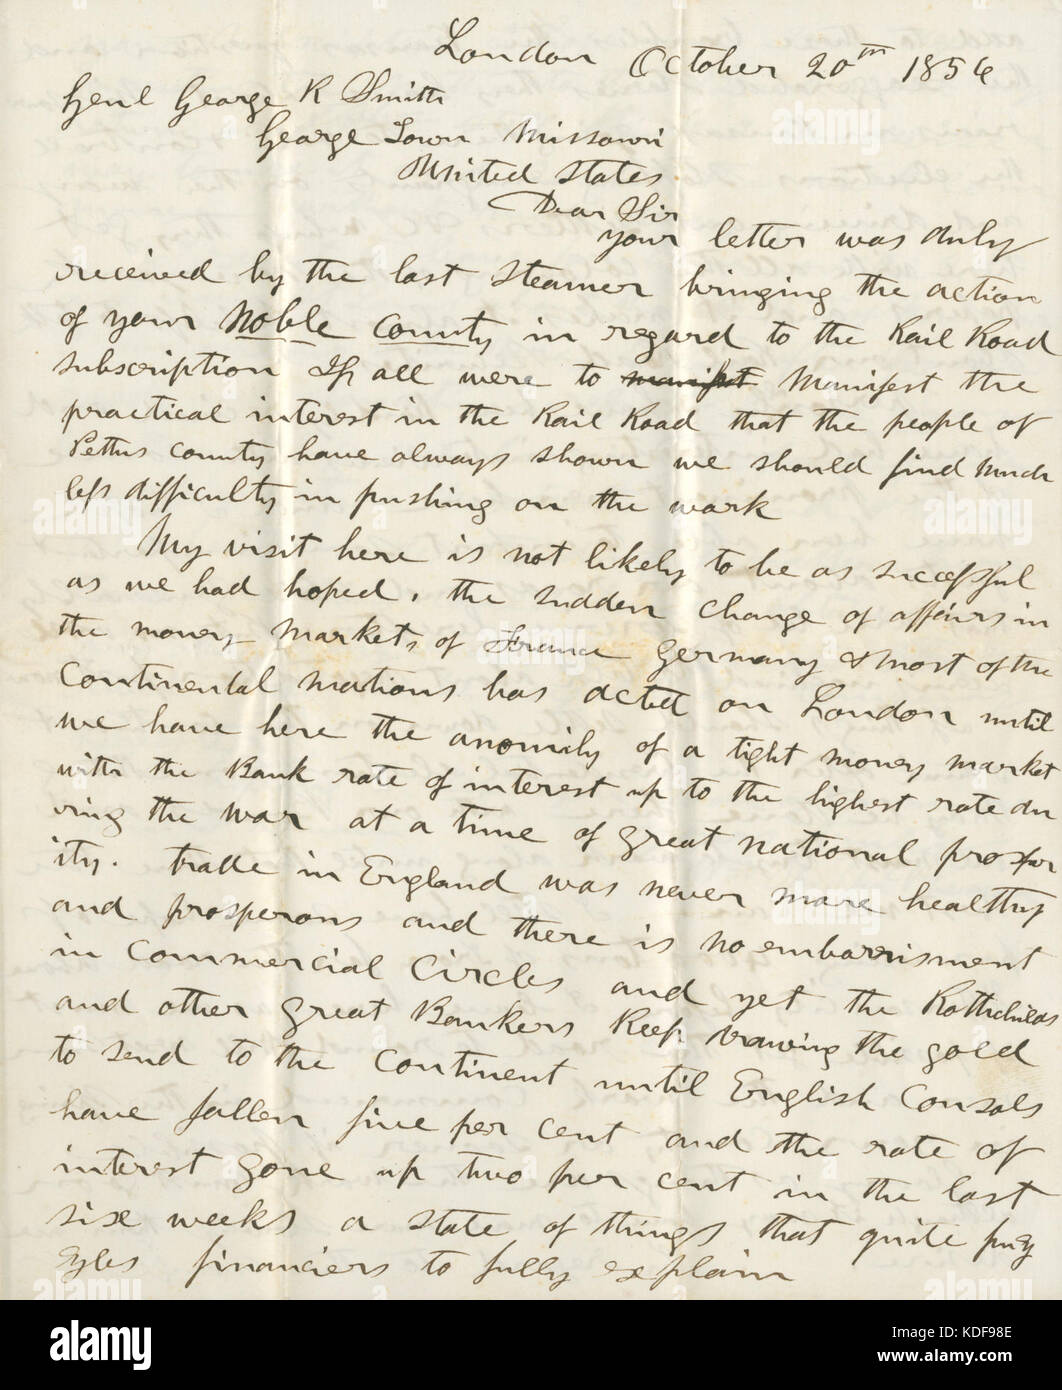 London October 20th 1856
Genl George R Smith
George Town Missouri
United States
Dear Sir
Your letter was duly
received by the last steamer bringing the action
of your Noble County in regard to the Rail Road
subscription If all were to manifest Manifest the
practical interest in the Rail Road that the people of
Pettus County have always shown we should find much
less difficulty in pushing on the work
My visit here is not likely to be as successful
as we had hoped. the sudden change of affairs in
the money markets of France Germany & most of the
Continental nations has acted on London until
we have here the anomily of a tight money market
with the Bank rate of interest up to the highest rate du
ring the war at a time of great national prosper
ity. trade in England was never more healthy
and prosperous and there is no embarrisment
in Commercial Circles and yet the Rothchilds
and other great Bankers keep drawing the gold
to send to the Continent until English Consols
have fallen five per cent and the rate of
interest gone up two per cent in the last
six weeks a state of things that quite puz
zles financiers to fully explain
alamy
alamy
alamy
alamy
alamy
alamy
alamy
alamy
Image ID: KDF98E
www.alamy.com